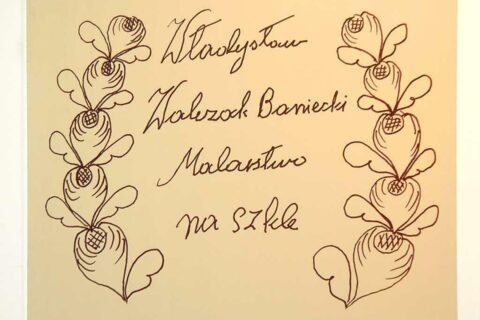 Władysław
Walczak Baniecki
Malarstwo
na szkle